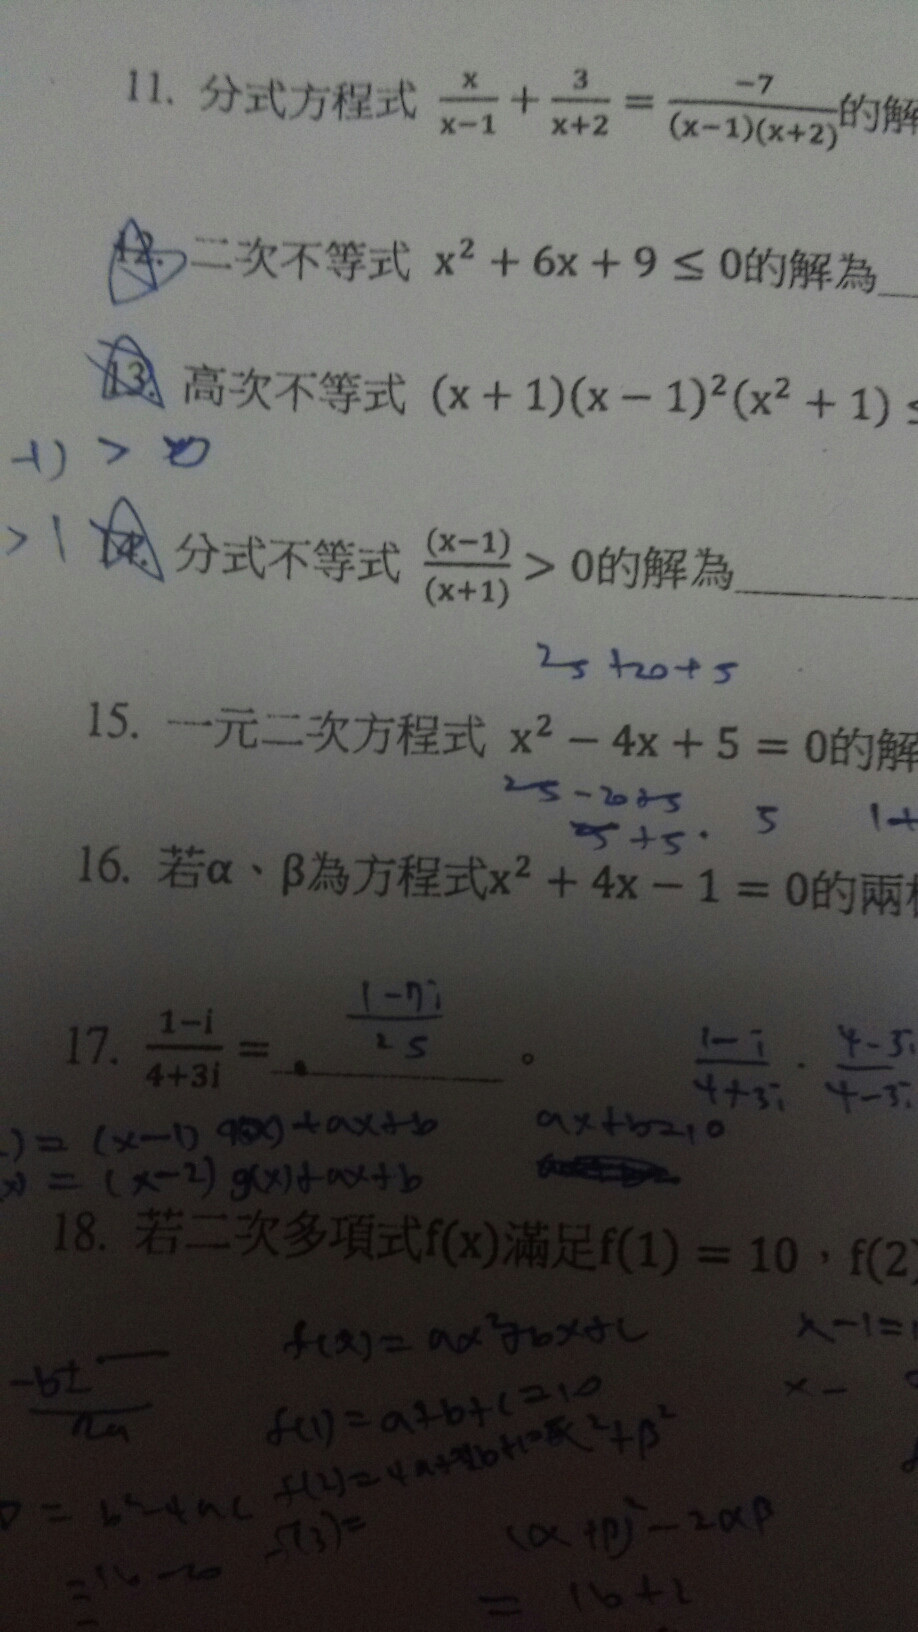 11. 分式方程式 x/(x−1) + 3/(x+2) = −7/((x−1)(x+2)) 的解
12. 二次不等式 x² + 6x + 9 ≤ 0的解為
13. 高次不等式 (x + 1)(x − 1)²(x² + 1) ≤
-1) >
> 1 14. 分式不等式 (x−1)/(x+1) > 0的解為
25 +20+5
15. 一元二次方程式 x² − 4x + 5 = 0的解
25-20+5
+5. 5 1+
16. 若α、β為方程式x² + 4x − 1 = 0的兩根
17. (1−i)/(4+3i) = (1-7i)/25 。 (1-i)/(4+3i) · (4-3i)/(4-3i)
) = (x-1) q(x)+ax+b ax+b=10
x) = (x-2) g(x)+ax+b
18. 若二次多項式f(x)滿足f(1) = 10，f(2)
f(x)= ax²+bx+c x-1=
-b± 2a x-
f(1)=a+b+c=10
α²+β²
D = b²-4ac f(2)=4a+2b+c=
f(3)= (α+β)²-2αβ
=16-20
= 16+2